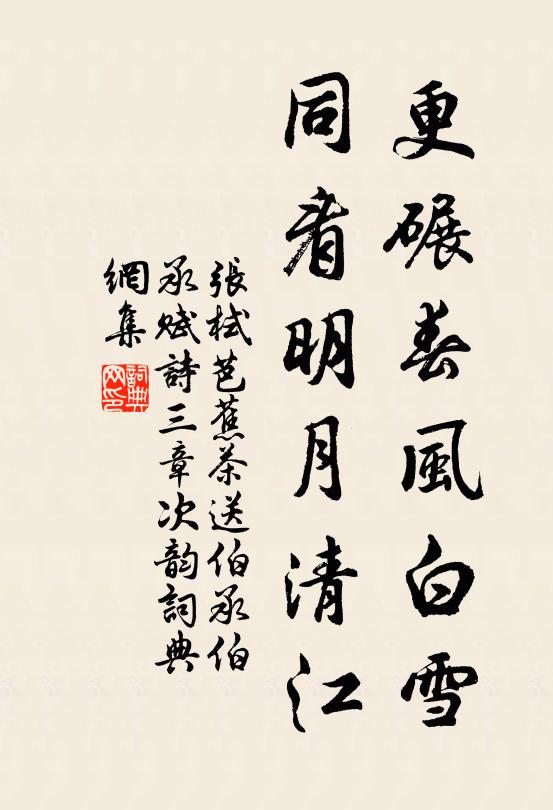 更碾春風白雪
同看明月清江
張栻芭蕉茶送伯承伯
承賦詩三章次韵詞典
網集
詞典
网印